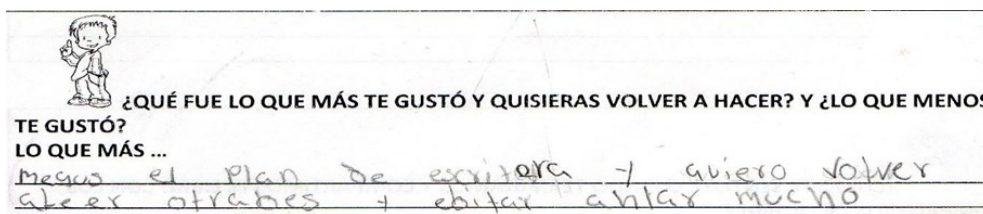 ¿QUÉ FUE LO QUE MÁS TE GUSTÓ Y QUISIERAS VOLVER A HACER? Y ¿LO QUE MENOS
TE GUSTÓ?
LO QUE MÁS ...
el Plan De escritora y quiero volver
aleer otrabes y ebitar ahlar mucho